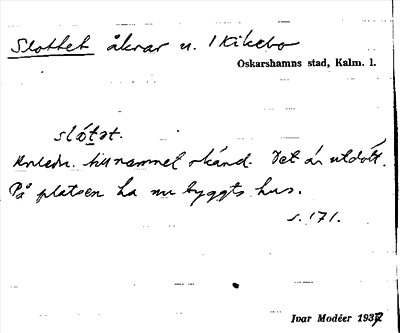 Slottet åkrar u. Kikebo
Oskarshamns stad, Kalm. l.
slåtət.
Anledn. till namnet okänd. Det är utdött.
På platsen ha nu byggts hus.
s. 171.
Ivar Modéer 1937